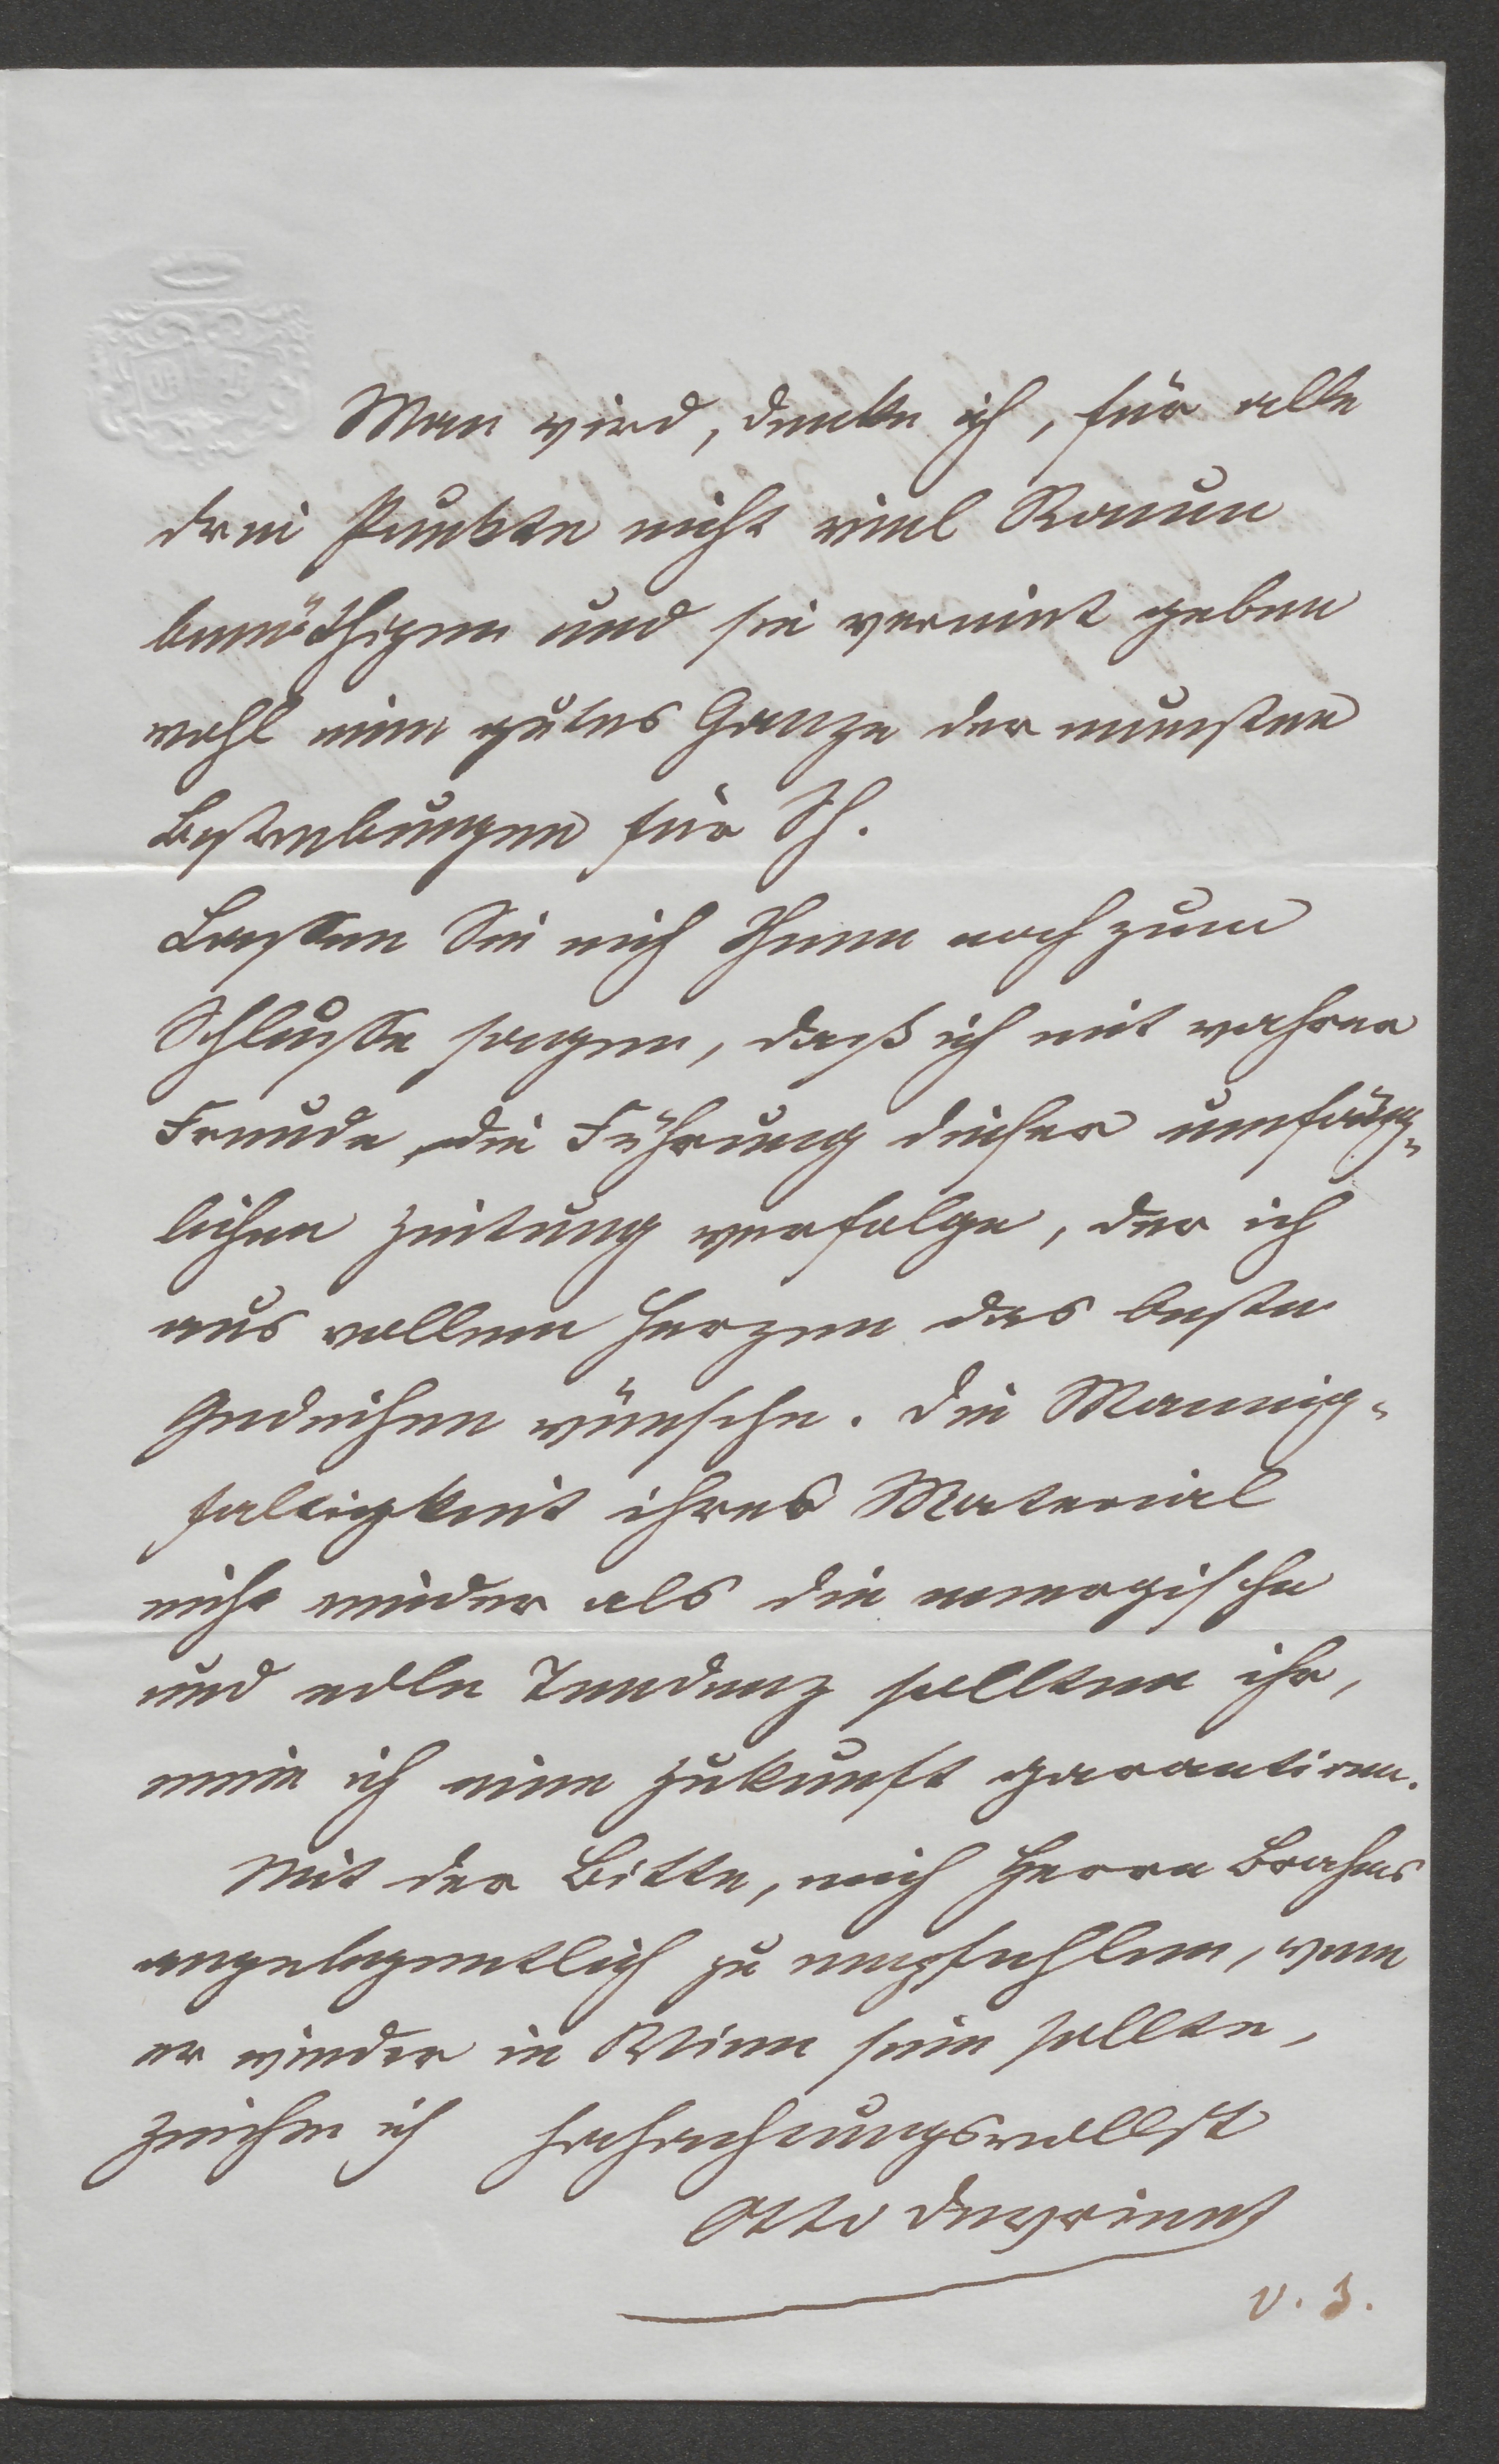 Man wird, denke ich, für alle
drei Punkte nicht viel Raum
benöthigen und sie vereint geben
wohl eine gutes Ganze der neuesten
Bestrebungen für Sh.
Lassen Sie mich Ihnen noch zum
Schlusse sagen, daß ich mit wahrer
Freude, die Führung dieser
lichen Zeitung verfolge, der ich
aus vollem Herzen das beste
Gedeihen wünsche. Die Mannig-
faltigkeit ihres Material
nicht minder als die energische
und edle Tendenz sollten ihr,
mein ich eine Zukunft garantiren.
Mit der Bitte, mich Herrn Brahms
angelegentlich zu empfehlen, wenn
er wieder in Wien sein sollte,
zeichne ich hochachtungsvollst
Otto Devrient